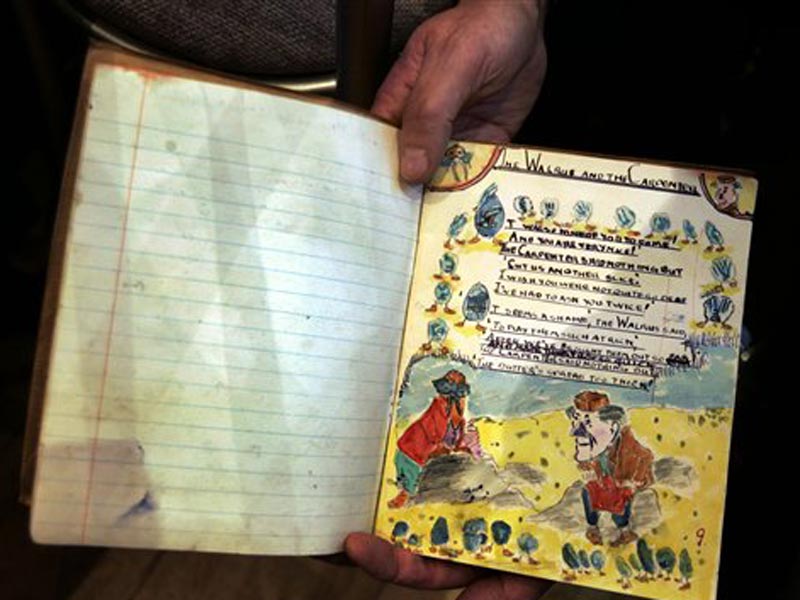 THE WALRUS AND THE CARPENTER
WAS SO KIND OF YOU TO COME!
AND YOU ARE VERY NICE!
THE CARPENTER SAID NOTHING BUT
'CUT US ANOTHER SLICE.
I WISH YOU WERE NOT QUITE SO DEAF
I'VE HAD TO ASK YOU TWICE!'
'IT SEEMS A SHAME', THE WALRUS SAID
'TO PLAY THEM SUCH A TRICK,
AFTER WE'VE BROUGHT THEM OUT SO
THE CARPENTER SAID NOTHING BUT
'THE BUTTER'S SPREAD TOO THICK!'
9